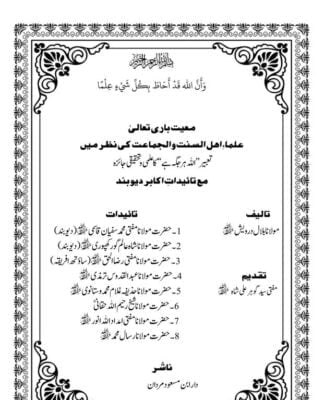 بسم اللہ الرحمن الرحیم
وَأَنَّ اللهَ قَدْ أَحَاطَ بِكُلِّ شَيْءٍ عِلْمًا
معیت باری تعالیٰ
علماء اھل السنت والجماعت کی نظر میں
تعبیر "اللہ ہر جگہ ہے" کا علمی و تحقیقی جائزہ
مع تائیدات اکابر دیوبند
تالیف
مولانا بلال درویش
تقدیم
مفتی سید گوہر علی شاہ
تائیدات
1۔ حضرت مولانا مفتی محمد سفیان قاسمی (دیوبند)
2۔ حضرت مولانا شاہ عالم گورکھپوری (دیوبند)
3۔ حضرت مولانا مفتی رضاء الحق (ساؤتھ افریقہ)
4۔ حضرت مولانا عبدالقدوس ترمذی
5۔ حضرت مولانا حذیفہ غلام محمد وستانوی
6۔ حضرت مولانا شیخ رحیم اللہ حقانی
7۔ حضرت مولانا مفتی امداد اللہ انور
8۔ حضرت مولانا رسال محمد
ناشر
دار ابن مسعود مردان